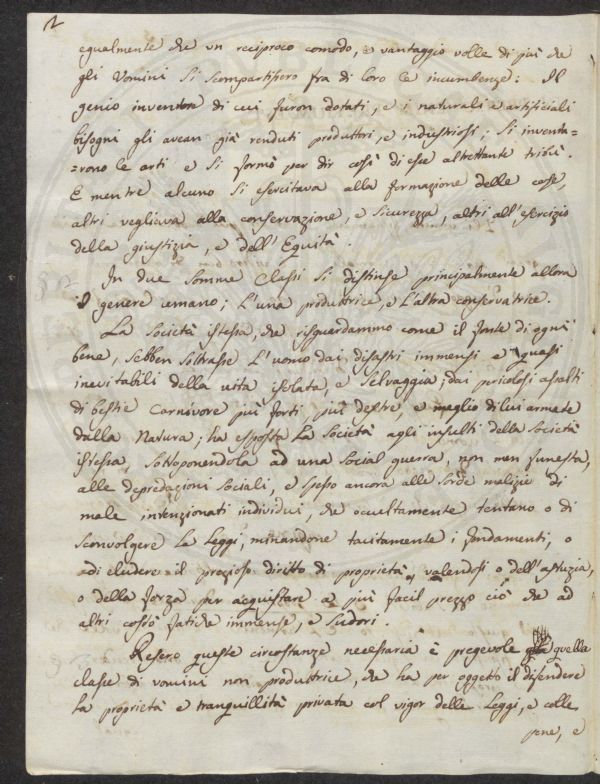 2
egualmente che un reciproco comodo, e vantaggio volle di più che
gli Uomini si scompartissero fra di loro le incumbenze: Il
genio inventore di cui furon dotati, e i naturali e artificiali
bisogni gli avean già renduti produttori, e industriosi; si inventa=
=rono le arti e si formò per dir così di esse altrettante tribù.
E mentre alcuno si esercitava alla formazione delle cose,
altri vegliava alla conservazione, e sicurezza, altri all'esercizio
della giustizia, e dell'Equità.
In due somme Classi si distinse principalmente allora
il genere umano; L'una produttrice, e L'altra conservatrice.
La Società istessa, che risguardammo come il fonte di ogni
bene, sebben sottrasse L'uomo dai disastri immensi e quasi
inevitabili della vita isolata, e Selvaggia; dai pricolosi assalti
di bestie Carnivore più forti più destre, e meglio di lui armate
dalla Natura; ha esposta La Società agli insulti della Società
istessa, sottoponendola ad una social guerra, non men funesta,
alle depredazioni sociali, e spesso ancora alle sorde malizie di
male intenzionati individui, che occultamente tentano o di
sconvolgere Le Leggi, minandone tacitamente i fondamenti, o
di eludere il prezioso diritto di proprietà, valendosi o dell'astuzia,
o della forza per acquistare a più facil prezzo ciò che ad
altri costò fatiche immense, e sudori.
Resero queste circostanze necessaria e pregevole quella
classe di uomini non produttrice, che ha per oggetto il difendere
la proprietà e tranquillità privata col vigor delle Leggi, e colle
pene, e